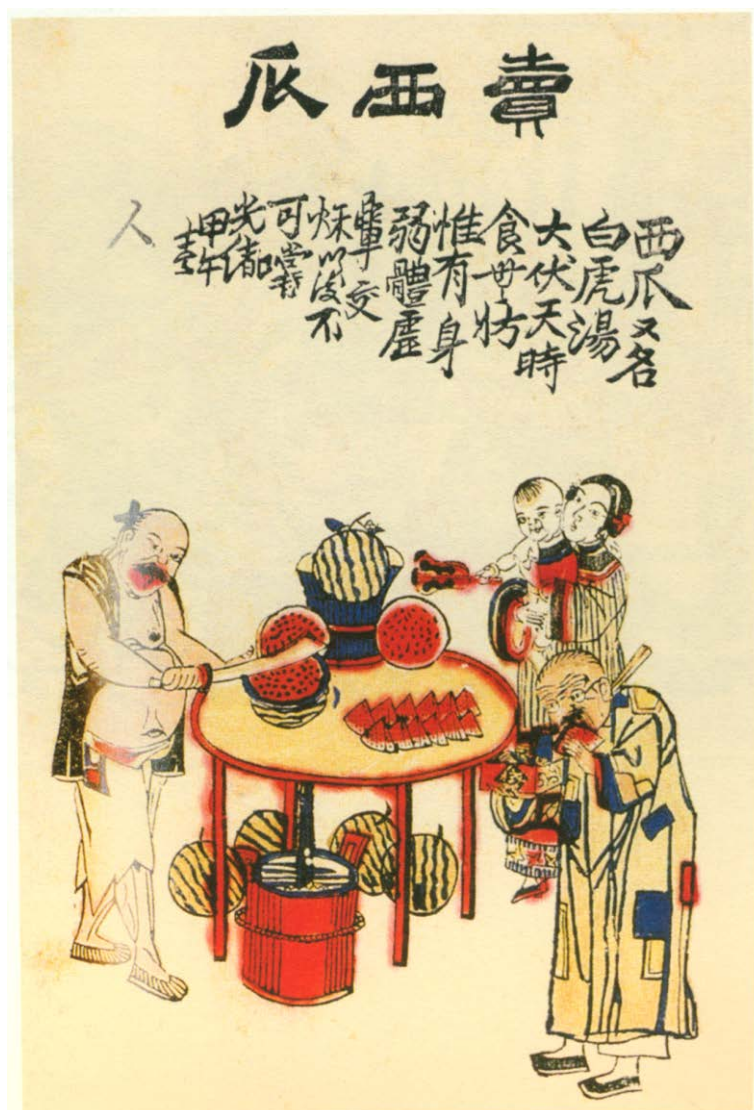 賣西瓜
西瓜又名
白虎湯
大伏天時
食毋妨
惟有身
弱體虛
輩交
秌以後不
可嘗
光緒
甲午
人